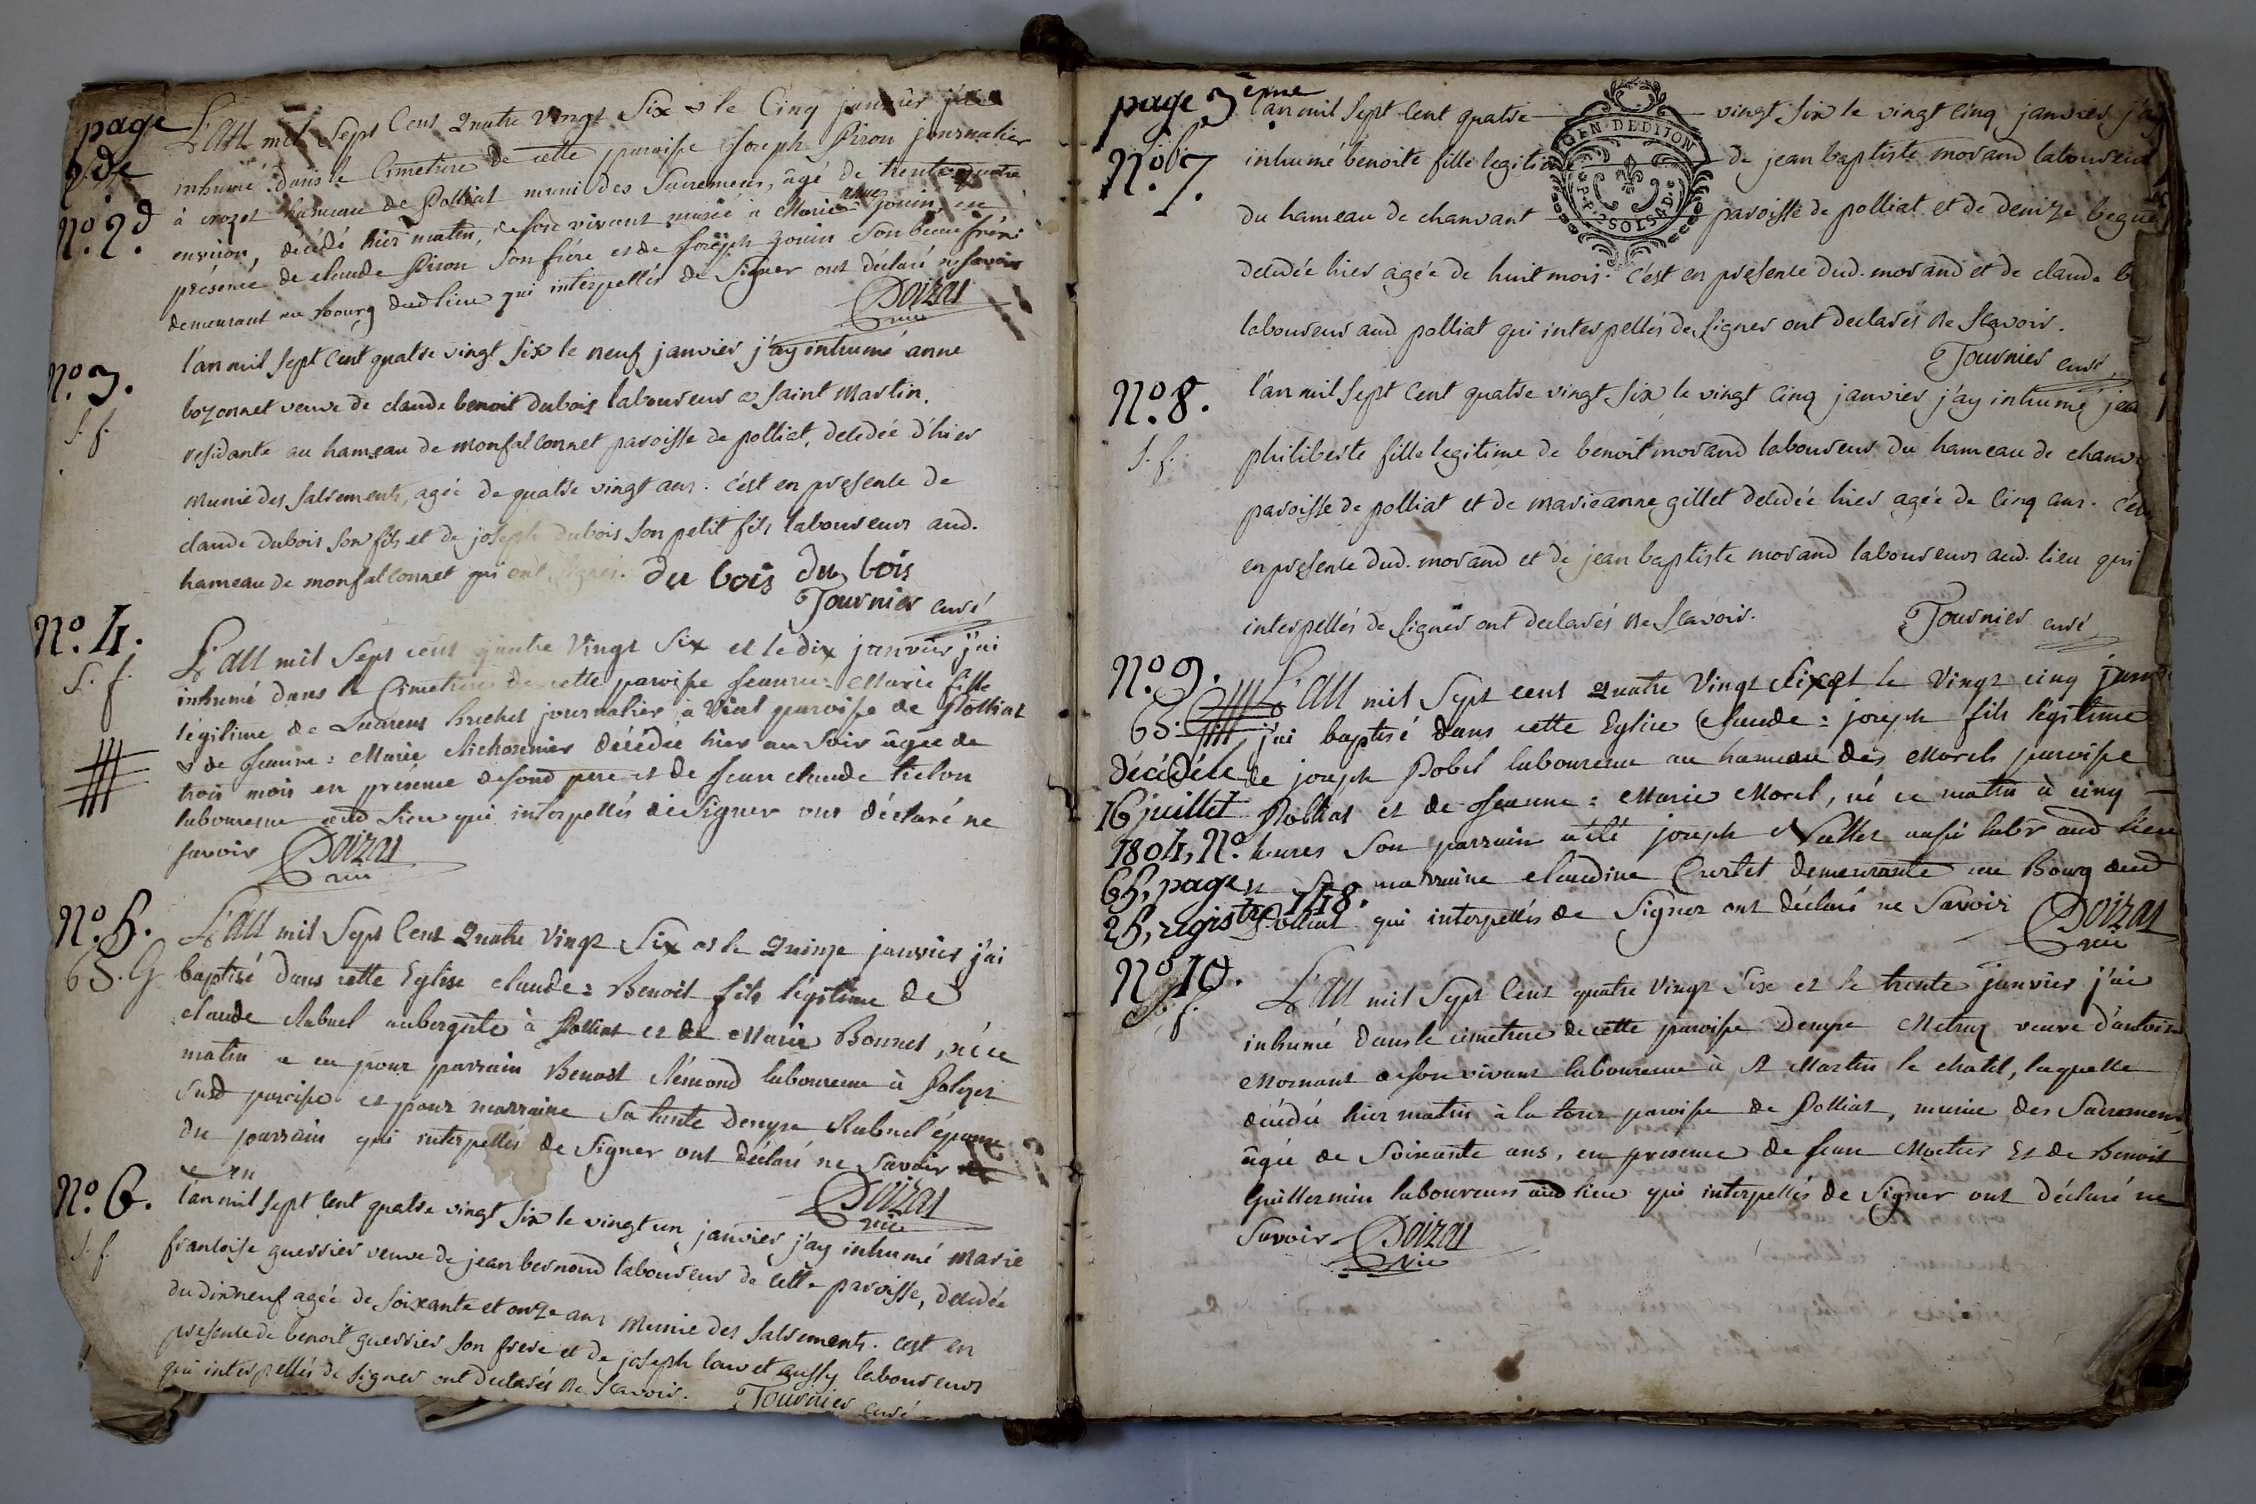 page
2.de
L'an mil sept cent quatre vingt six & le cinq janvier j'ai
inhumé dans le cimetiere de cette paroisse joseph Piron journalier
à crozet hameau de Polliat muni des sacremens, âgé de trente quatre
No. 2d
environ, décédé hier matin, de son vivant marié à Marie anne gouin, en
présence de claude Piron son frére et de joseph gouin son beau frére
demeurant au bourg dud lieu qui interpellés de signer ont déclaré ne savoir
Doizat
vic
No. 3.
s. f.
l'an mil sept cent quatre vingt six le neuf janvier j'ay inhumé anne
bozonnet veuve de claude benoit dubois laboureur a saint Martin.
residante au hameau de monfalconnet paroisse de polliat, decedée d'hier
munie des sacrements, agée de quatre vingt ans. c'est en presence de
claude dubois son fils et de joseph dubois son petit fils laboureurs aud.
hameau de monfalconnet qui ont signés. du bois du bois
Tournier curé
No. 4.
s. f.
L'an mil sept cent quatre vingt six et le dix janvier j'ai
inhumé dans le cimetiere de cette paroisse jeanne = Marie fille
légitime de Laurent Brichet journalier à Vial paroisse de Polliat
& de jeanne = Marie décédée hier au soir âgée de
trois mois en présence de son d père et de jean claude
laboureur aud lieu qui interpellés de signer ont déclaré ne
savoir Doizat
vic
No. 5.
63. G
L'an mil sept cent quatre vingt six et le quinze janvier j'ai
baptisé dans cette Eglise claude = Benoit fils légitime de
claude Rabuel aubergiste à Polliat et de Marie Bonnet, né ce
matin a eu pour parrain Benoit Rémond laboureur à
susd paroisse et pour marraine sa tante Denyse Rabuel épouse
du parrain qui interpellés de signer ont déclaré ne savoir
Doizat
vic
No. 6.
s. f.
l'an mil sept cent quatre vingt six le vingt un janvier j'ay inhumé marie
francoise guerrier veuve de jean bernond laboureur de cette paroisse, decedée
du dixneuf agée de soixante et onze ans munie des sacrements. cest en
presence de benoit guerrier son frere et de joseph louvet aussy laboureurs
qui interpellés de signer ont declarés ne scavoir. Tournier curé
page 3eme
No. 7.
GEN. DE DIJON
2 SOLS 4 D.
l'an mil sept cent quatre vingt six le vingt cinq janvier j'ay
inhumé benoite fille legitime de jean baptiste morand laboureur
du hameau de chanvant paroisse de polliat et de denize
decedée hier agée de huit mois. c'est en presence dud. morand et de claude
laboureurs aud polliat qui interpellés de signer ont declarés ne scavoir.
Tournier curé
No. 8.
s. f.
l'an mil sept cent quatre vingt six le vingt cinq janvier j'ay inhumé
philiberte fille legitime de benoit morand laboureur du hameau de
paroisse de polliat et de marieanne gillet decedée hier agée de cinq ans. c'est
en presence dud. morand et de jean baptiste morand laboureurs aud. lieu qui
interpellés de signer ont declarés ne scavoir. Tournier curé
No. 9.
63.
L'an mil sept cent quatre vingt six et le vingt cinq janv
j'ai baptisé dans cette Eglise claude = joseph fils légitime
de joseph Pobel laboureur au hameau des Morels paroisse
Polliat et de jeanne = Marie Morel, né ce matin à cinq
heures son parrain a été joseph aussi labr aud lieu
et sa marraine claudine Curtet demeurante au Bourg dud
Polliat qui interpellés de signer ont déclaré ne savoir Doizat
vic
décédé le
16 juillet
1804, No.
65, page 148.
25, registre
No. 10.
s. f.
L'an mil sept cent quatre vingt six et le trente janvier j'ai
inhumé dans le cimetiere de cette paroisse Denyse Metraz veuve d'antoine
Mornant de son vivant laboureur à St Martin le chatel, laquelle
décédée hier matin à la tour paroisse de Polliat, munie des sacremens,
âgée de soixante ans, en présence de jean Moctier et de Benoit
Guillermin laboureurs aud lieu qui interpellés de signer ont déclaré ne
savoir Doizat
vic